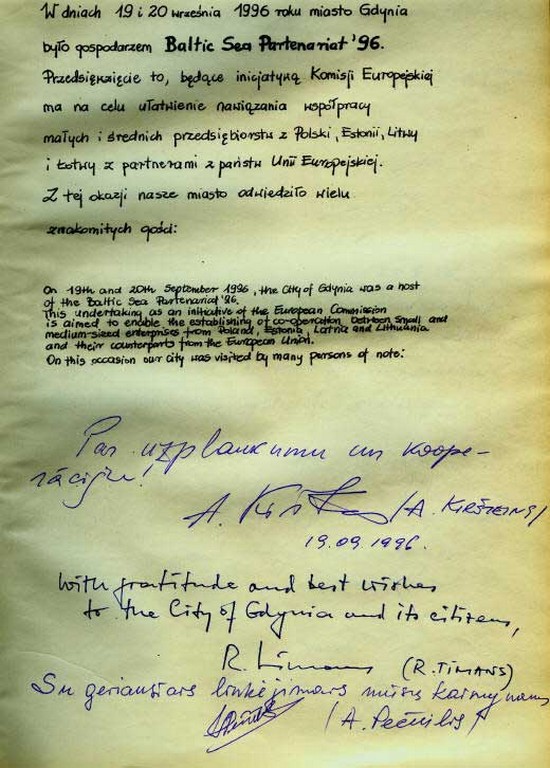 W dniach 19 i 20 września 1996 roku miasto Gdynia
było gospodarzem Baltic Sea Partenariat '96.
Przedsięwzięcie to, będące inicjatywą Komisji Europejskiej
ma na celu ułatwienie nawiązania współpracy
małych i średnich przedsiębiorstw z Polski, Estonii, Litwy
i Łotwy z partnerami z państw Unii Europejskiej.
Z tej okazji nasze miasto odwiedziło wielu
znakomitych gości:
On 19th and 20th September 1996, the City of Gdynia was a host
of the Baltic Sea Partenariat '96.
This undertaking as an initiative of the European Commission
is aimed to enable the establishing of co-operation between small and
medium-sized enterprises from Poland, Estonia, Latvia and Lithuania
and their counterparts from the European Union.
On this occasion our city was visited by many persons of note:
Par uzplaukumu un koope-
rāciju!
A. Kirš /A. KIRŠTEINS/
19.09.1996.
With gratitude and best wishes
to the City of Gdynia and its citizens,
R. Timans (R. TIMANS)
Su geriausiais linkėjimais mūsų kaimynams
/A. Pečiulis/